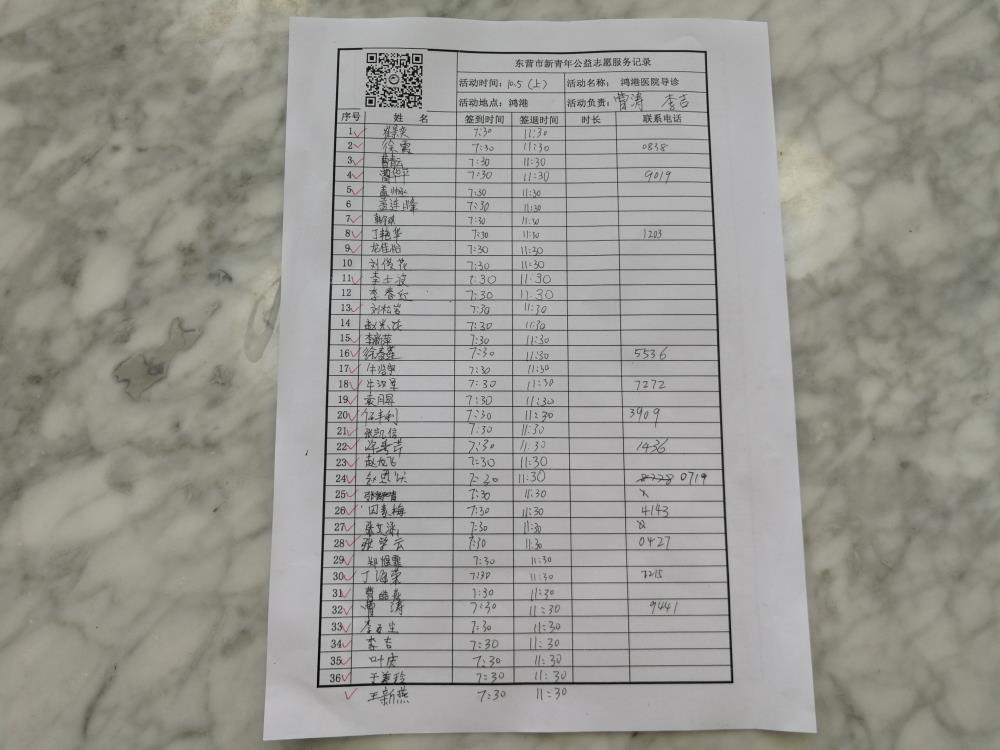 东营市新青年公益志愿服务记录
活动时间：10.5（上） 活动名称： 鸿港医院导诊
活动地点：鸿港 活动负责：曹涛 李吉
序号 姓 名 签到时间 签退时间 时长 联系电话
1 7:30 11:30
2 徐霞 7:30 11:30 0838
3 7:30 11:30
4 曹华平 7:30 11:30 9019
5 7:30 11:30
6 孟连峰 7:30 11:30
7 7:30 11:30
8 丁艳华 7:30 11:30 1203
9 龙佳怡 7:30 11:30
10 刘俊花 7:30 11:30
11 李士波 7:30 11:30
12 李春红 7:30 11:30
13 刘松岩 7:30 11:30
14 7:30 11:30
15 7:30 11:30
16 徐春莲 7:30 11:30 5536
17 7:30 11:30
18 7:30 11:30 7272
19 袁月屏 7:30 11:30
20 任丰利 7:30 11:30 3909
21 张凯信 7:30 11:30
22 许秀芹 7:30 11:30 1436
23 赵龙飞 7:30 11:30
24 7:30 11:30 8228 0719
25 7:30 11:30
26 田素梅 7:30 11:30 4143
27 7:30 11:30
28 张学云 7:30 11:30 0427
29 7:30 11:30
30 丁海荣 7:30 11:30 7215
31 7:30 11:30
32 曹涛 7:30 11:30 9441
33 7:30 11:30
34 李吉 7:30 11:30
35 叶虎 7:30 11:30
36 于美玲 7:30 11:30
王新燕 7:30 11:30